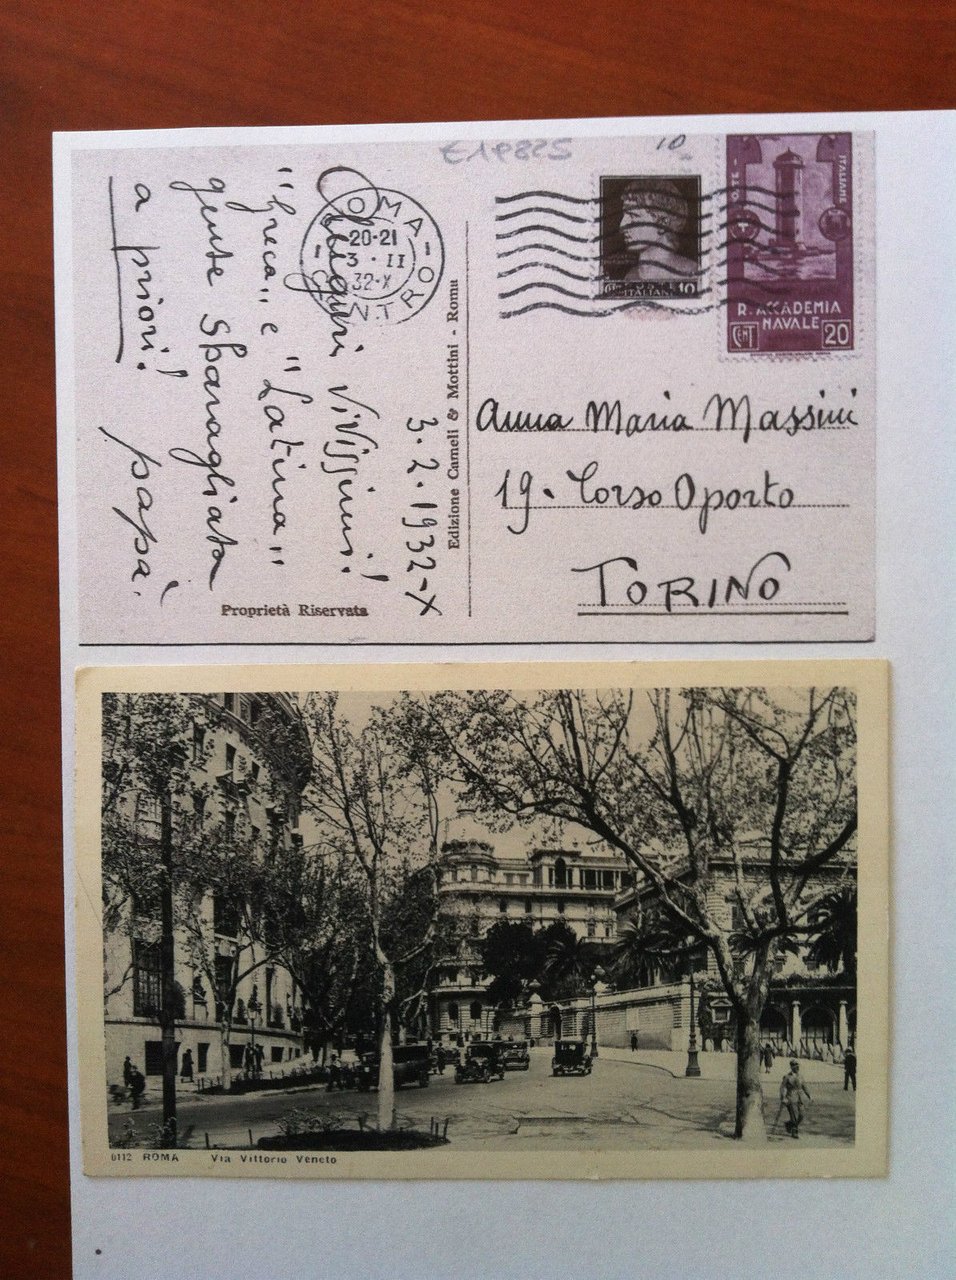 E1P825
10
ROMA
CENTRO
20-21
3 · II
32-X
POSTE
ITALIANE 10
ITALIANE
R. ACCADEMIA
NAVALE
CENT 20
3.2.1932-X
Auguri vivissimi!
"Greca" e "Latina"
gente Sbaragliata
a priori! papà.
Edizione Cameli & Mottini - Roma
Proprietà Riservata
Anna Maria Massini
19. Corso Oporto
TORINO
6112 ROMA Via Vittorio Veneto